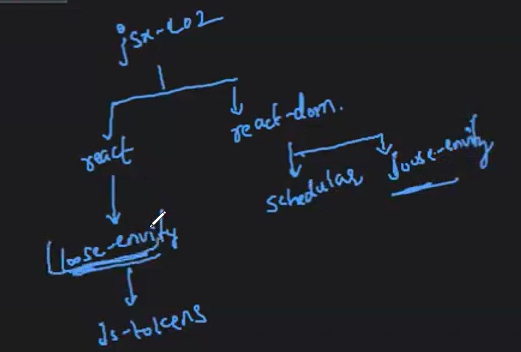 jsx-102
react
react-dom.
schedular
loose-envity
loose-envity
Js-tokens